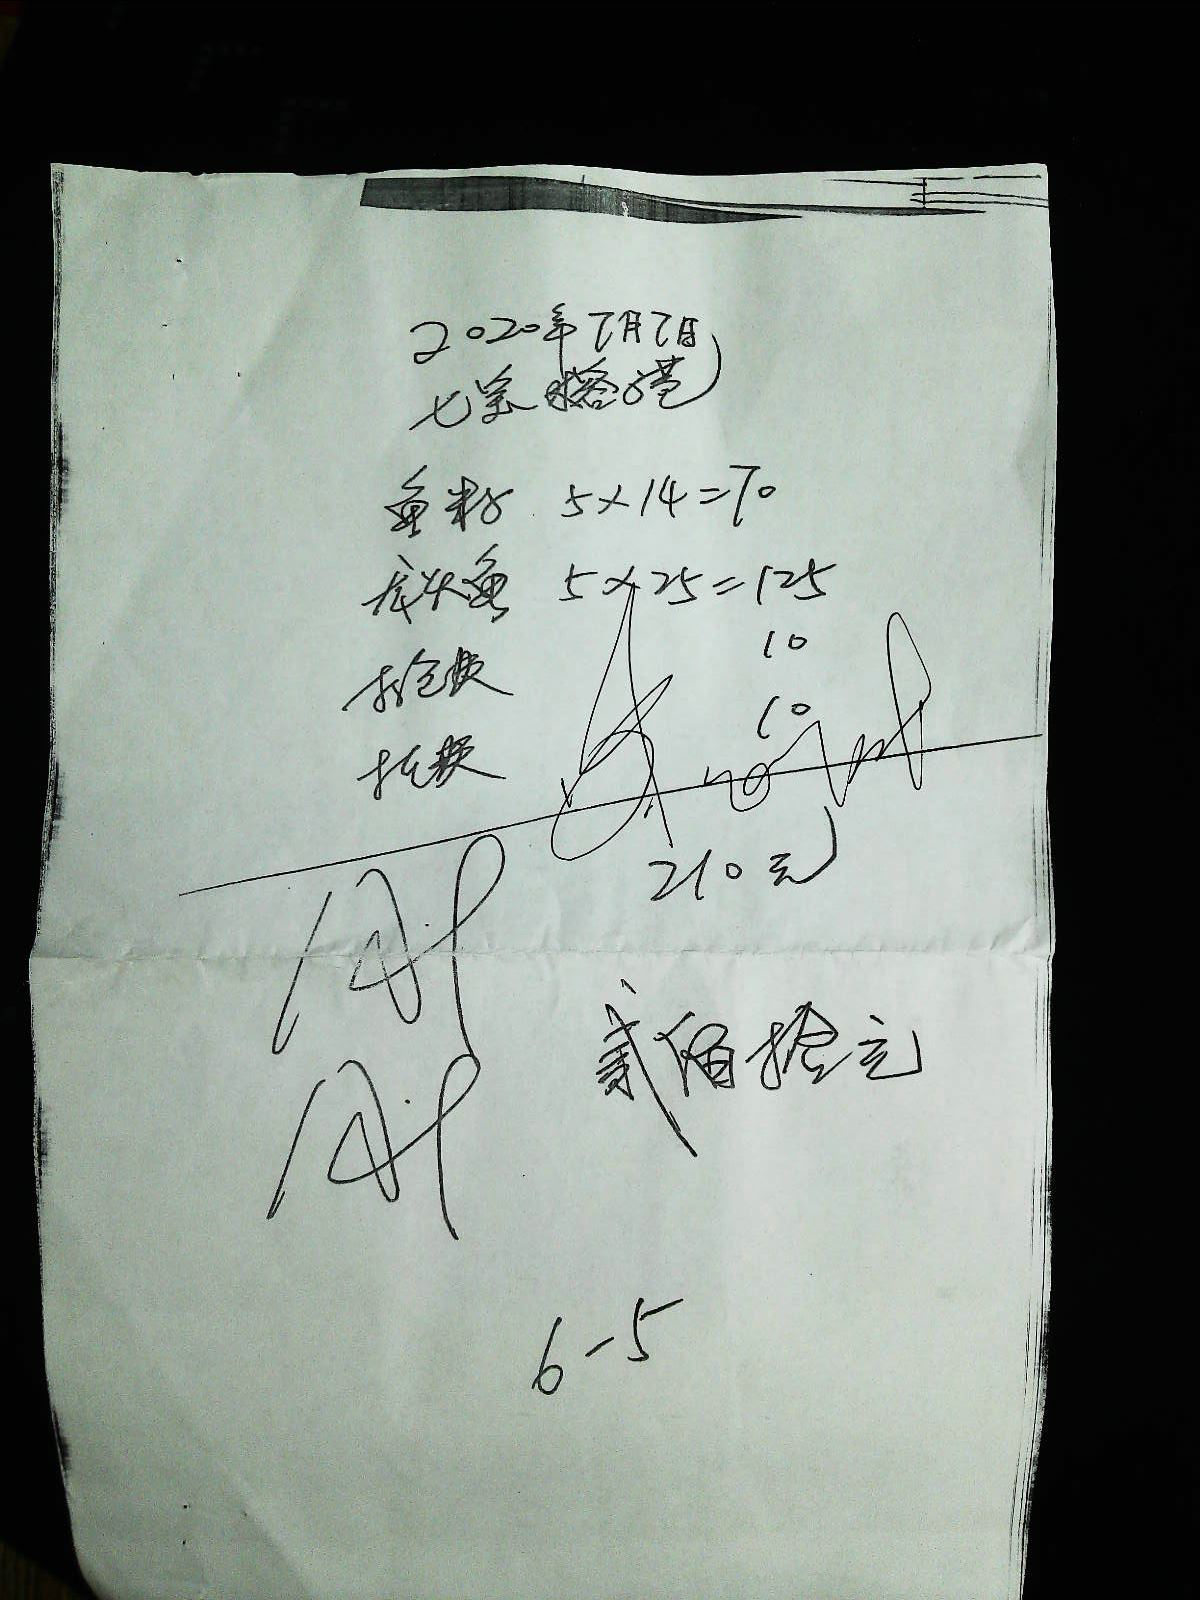 2020年7月7日
七
鱼籽 5×14=70
龙头鱼 5×25=125
打包费 10
托费 10
210元
贰佰拾元
6-5